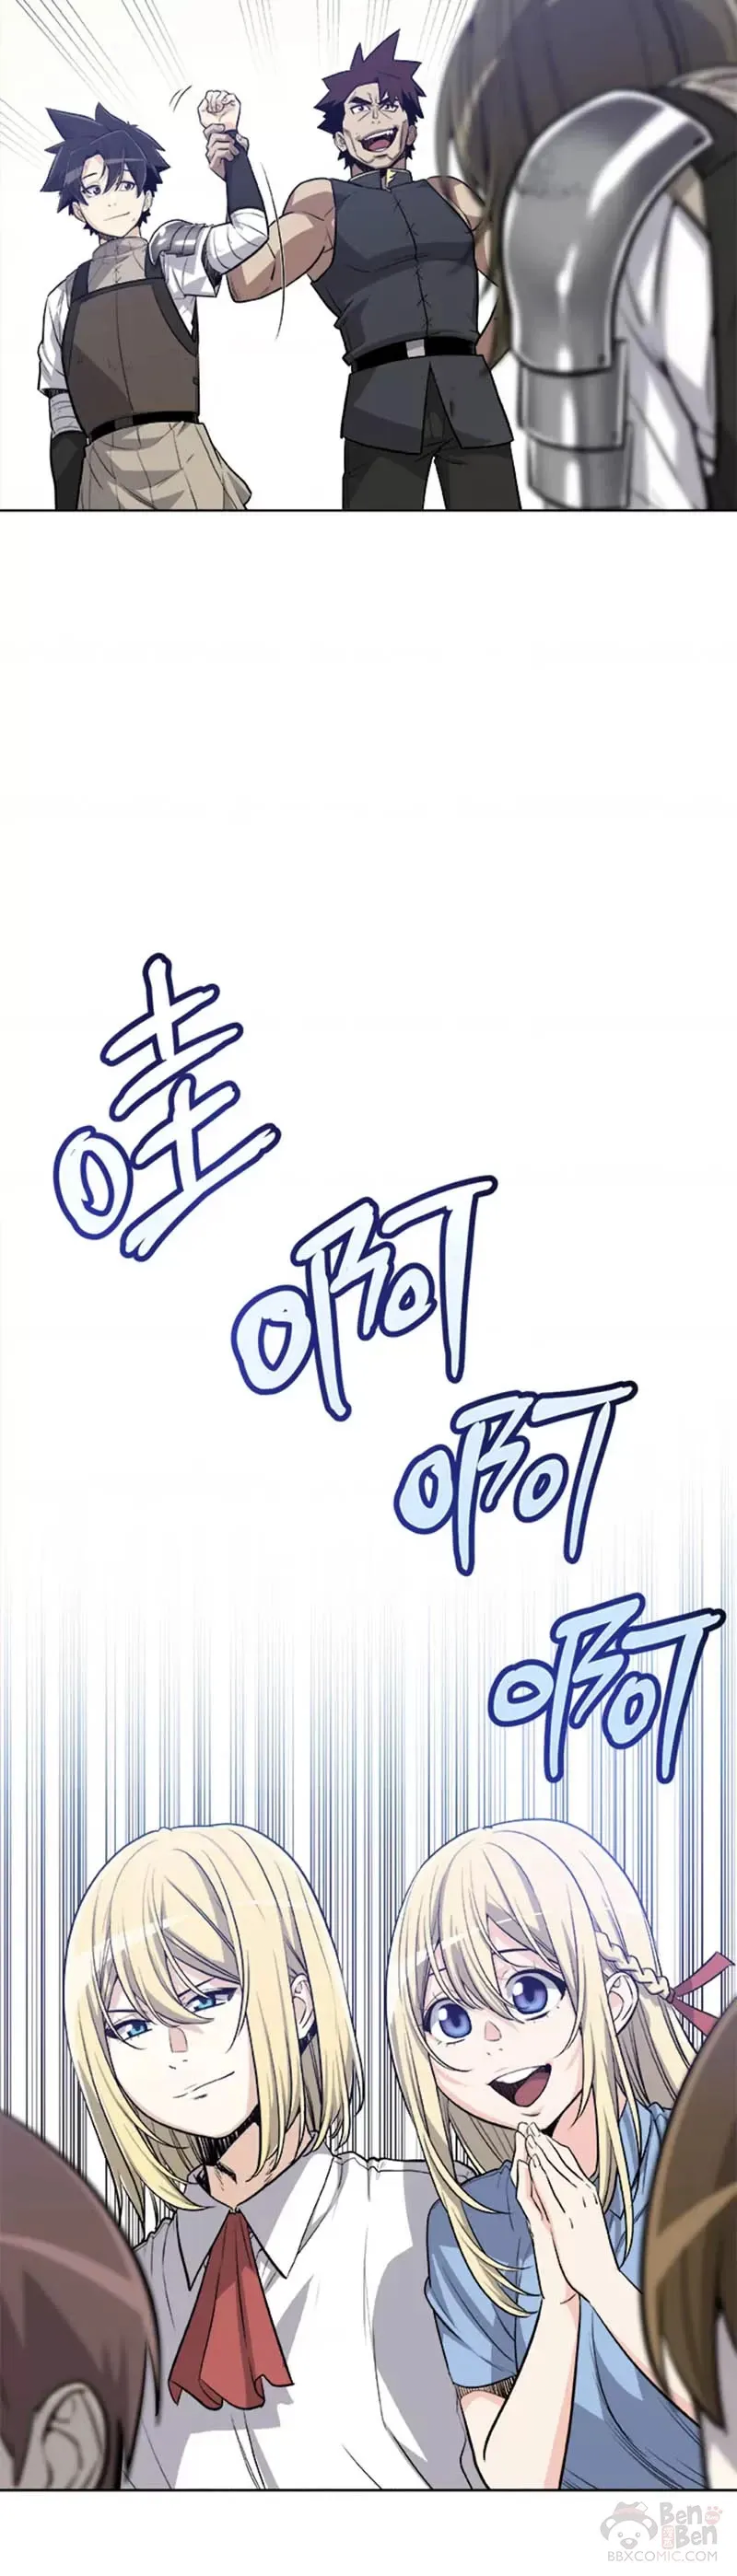 哇
啊
啊
啊
Ben
Ben
BBXCOMIC.COM